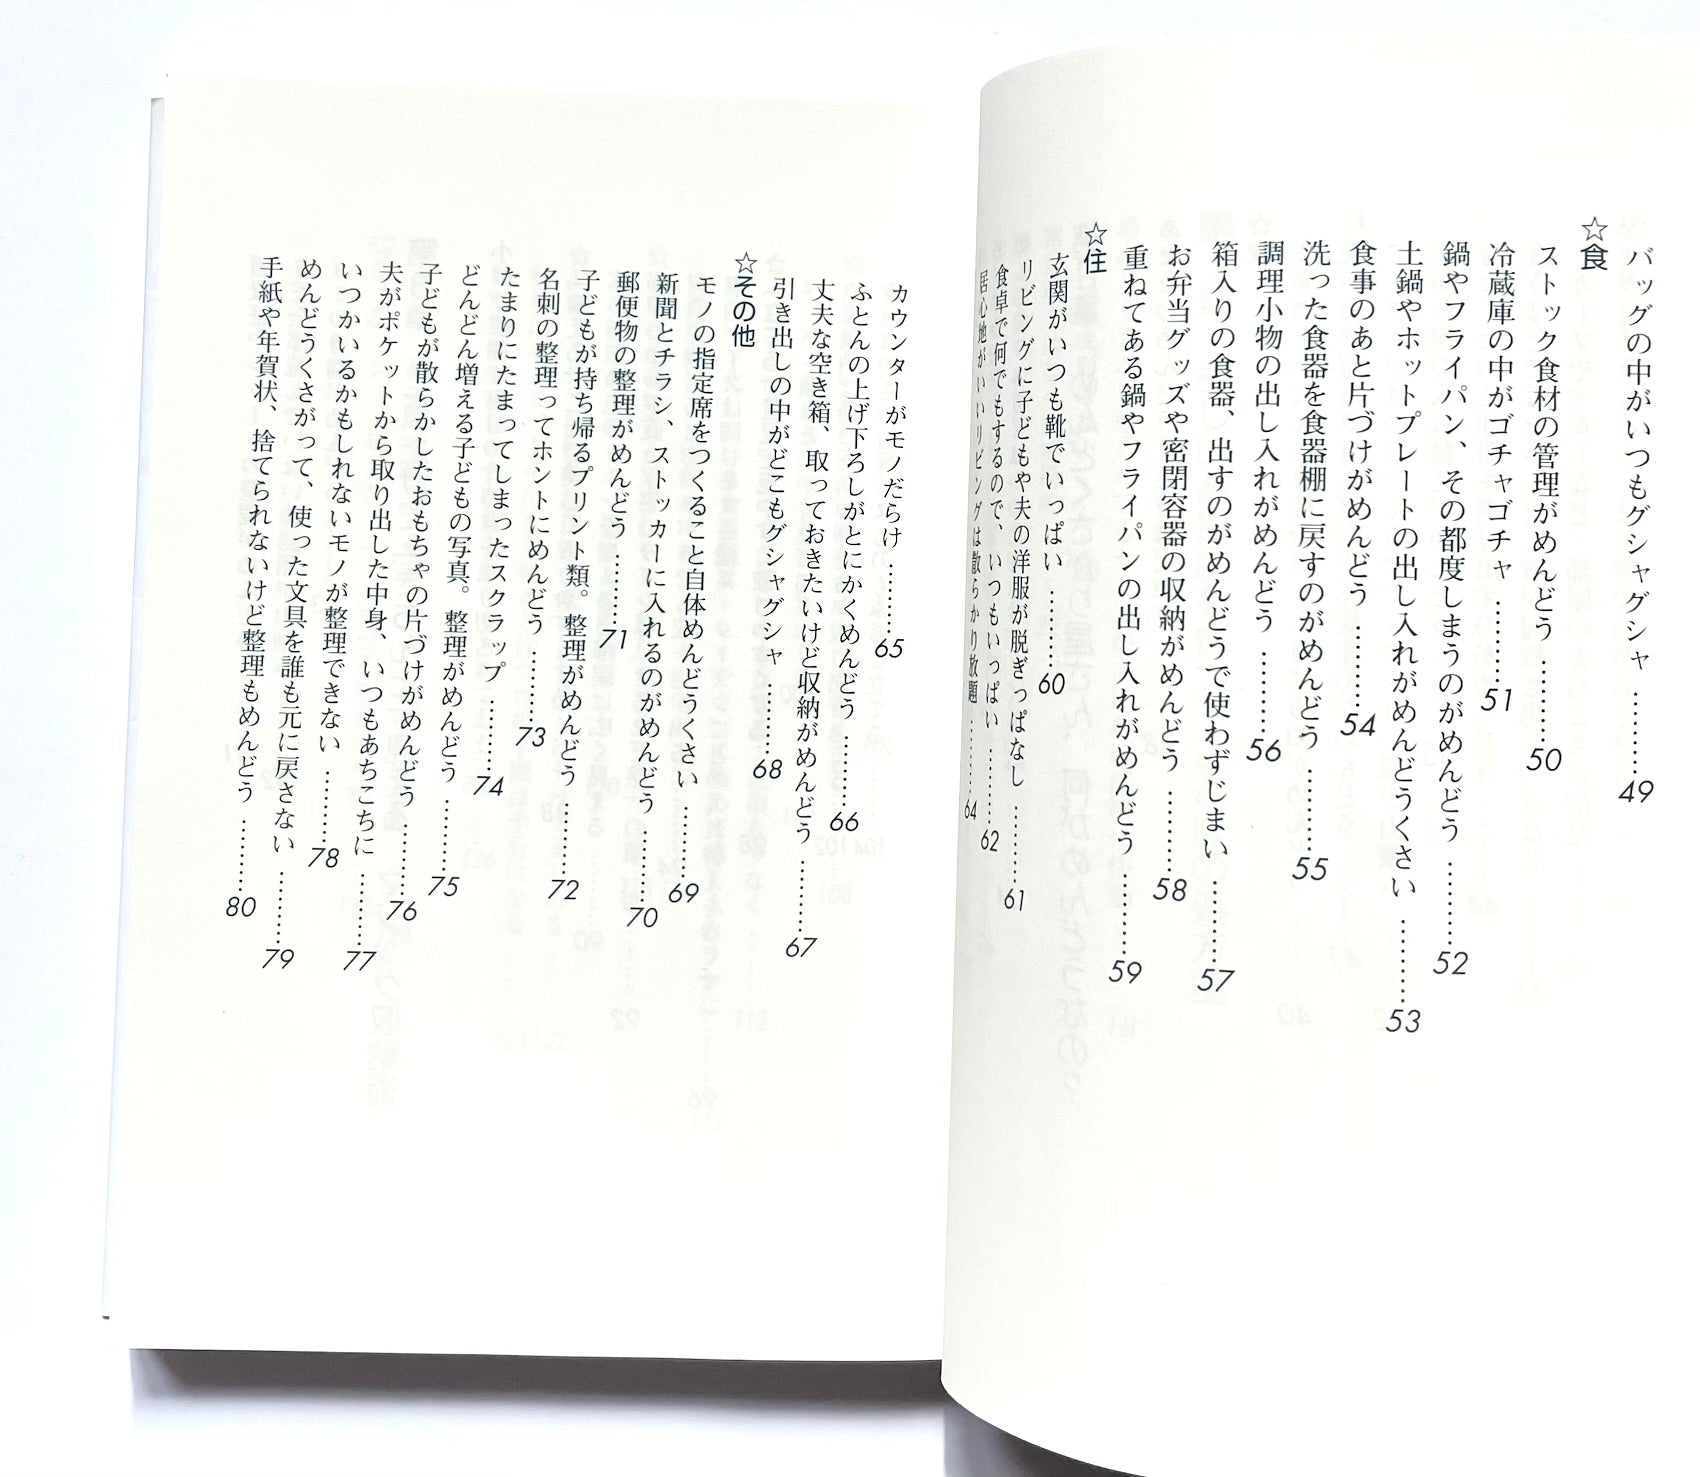 バッグの中がいつもグシャグシャ ………49
☆食
ストック食材の管理がめんどう ………50
冷蔵庫の中がゴチャゴチャ ………51
鍋やフライパン、その都度しまうのがめんどう ………52
土鍋やホットプレートの出し入れがめんどうくさい ………53
食事のあと片づけがめんどう ………54
洗った食器を食器棚に戻すのがめんどう ………55
調理小物の出し入れがめんどう ………56
箱入りの食器、出すのがめんどうで使わずじまい ………57
お弁当グッズや密閉容器の収納がめんどう ………58
重ねてある鍋やフライパンの出し入れがめんどう ………59
☆住
玄関がいつも靴でいっぱい ………60
リビングに子どもや夫の洋服が脱ぎっぱなし ………61
食卓で何でもするので、いつもいっぱい ………62
居心地がいいリビングは散らかり放題 ………64
カウンターがモノだらけ ………65
ふとんの上げ下ろしがとにかくめんどう ………66
丈夫な空き箱、取っておきたいけど収納がめんどう ………67
引き出しの中がどこもグシャグシャ ………68
☆その他
モノの指定席をつくること自体めんどうくさい ………69
新聞とチラシ、ストッカーに入れるのがめんどう ………70
郵便物の整理がめんどう ………71
子どもが持ち帰るプリント類。整理がめんどう ………72
名刺の整理ってホントにめんどう ………73
たまりにたまってしまったスクラップ ………74
どんどん増える子どもの写真。整理がめんどう ………75
子どもが散らかしたおもちゃの片づけがめんどう ………76
夫がポケットから取り出した中身、いつもあちこちに ………77
いつかいるかもしれないモノが整理できない ………78
めんどうくさがって、使った文具を誰も元に戻さない ………79
手紙や年賀状、捨てられないけど整理もめんどう ………80